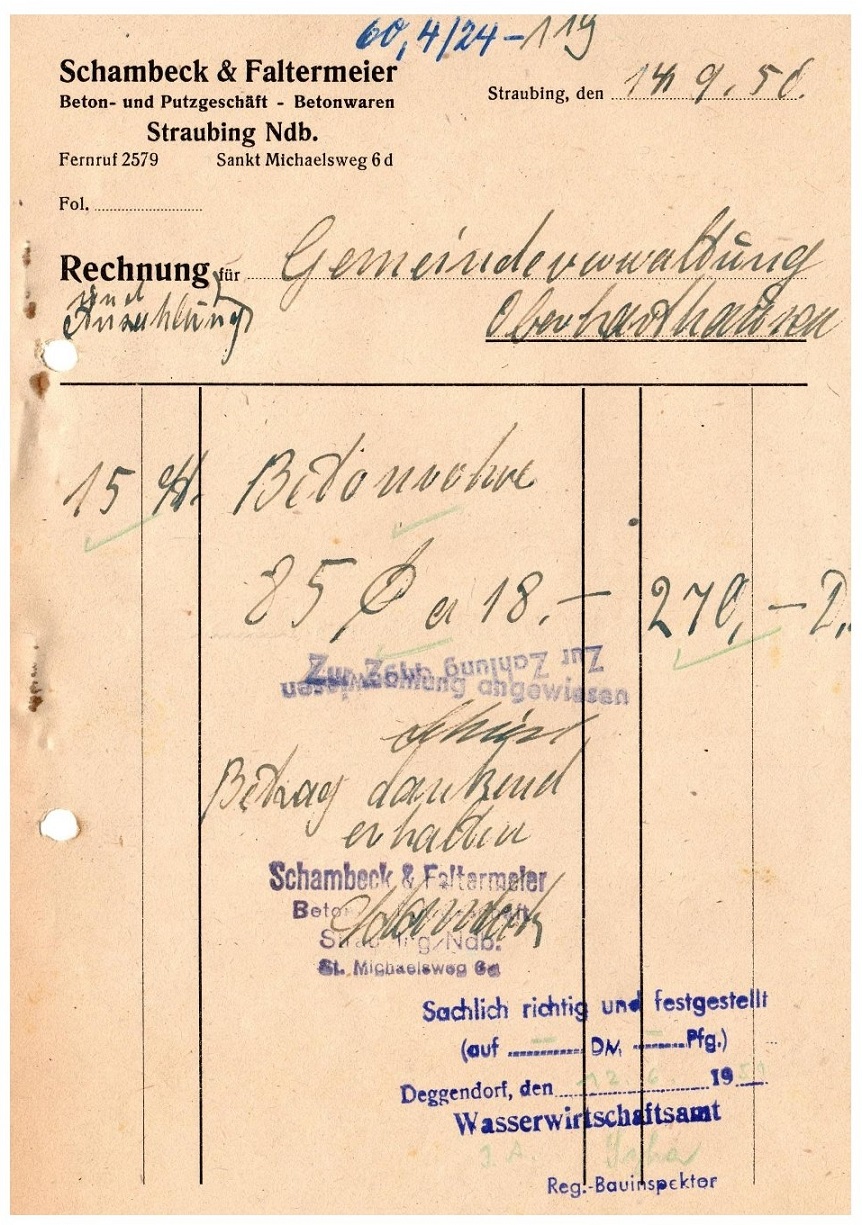 60,4/24-119
Schambeck & Faltermeier
Beton- und Putzgeschäft - Betonwaren
Straubing, den 14. 9. 50.
Straubing Ndb.
Fernruf 2579 Sankt Michaelsweg 6 d
Fol.
Rechnung für Gemeindeverwaltung
und
Auszahlung
15 St. Betonrohre
85 ₵ a 18.- 270,- D.
Zur Zahlung angewiesen
Betrag dankend
erhalten
Schambeck & Faltermeier
Straubing/Ndb.
St. Michaelsweg 6d
Sachlich richtig und festgestellt
(auf - DM, - Pfg.)
Deggendorf, den 12. 6. 1951
Wasserwirtschaftsamt
J. A.
Reg.-Bauinspektor